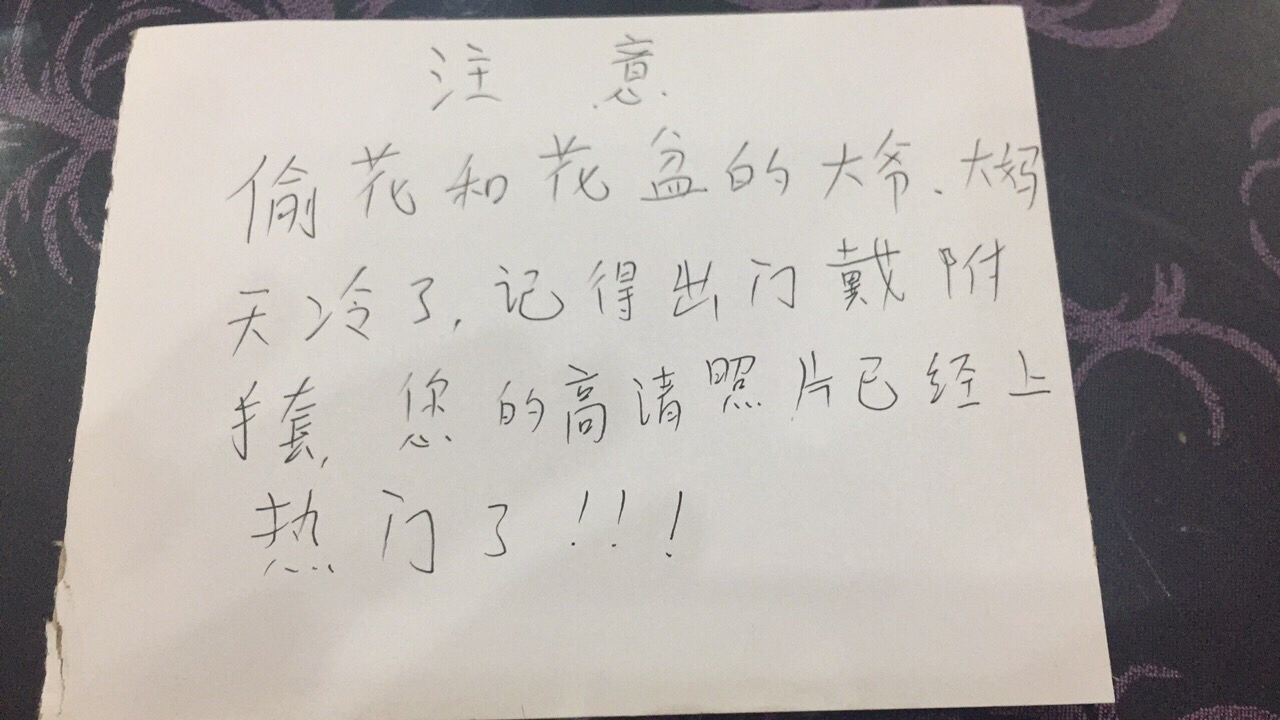 注 意
偷花和花盆的大爷、大妈
天冷了,记得出门戴附
手套,您的高清照片已经上
热门了!!!